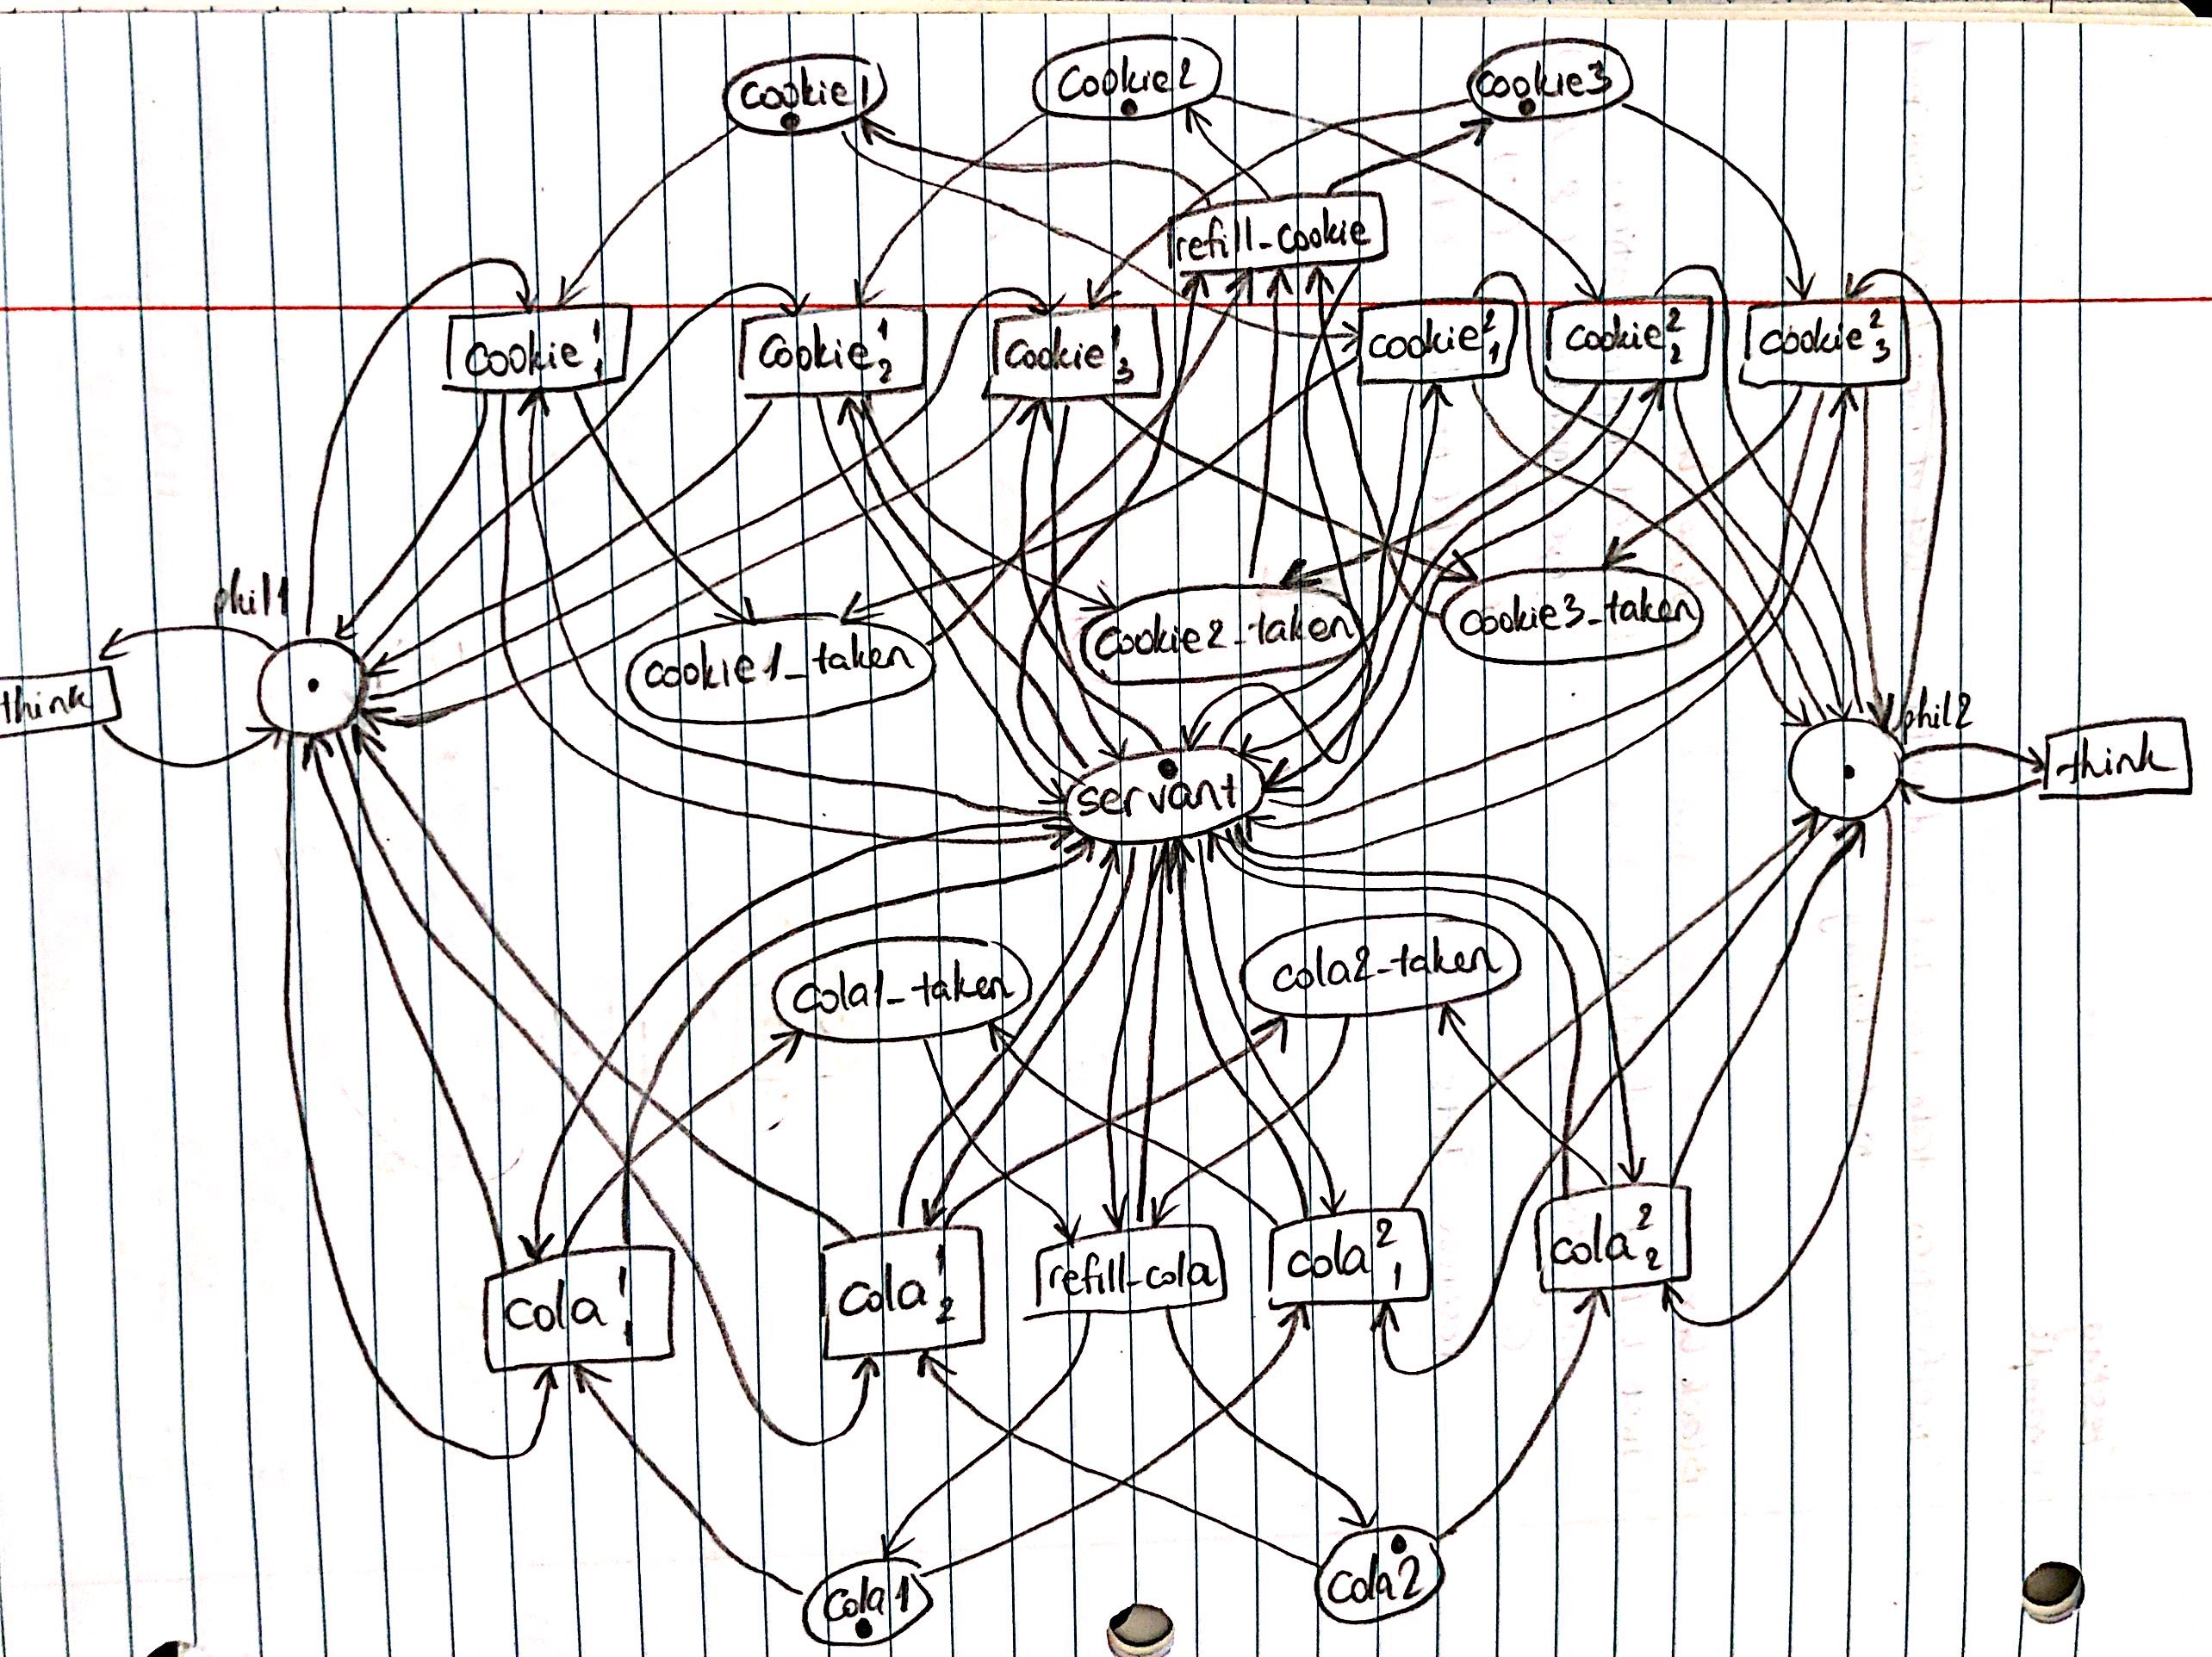 cookie1
cookie2
cookie3
refill-cookie
cookie¹₁
cookie¹₂
cookie¹₃
cookie²₁
cookie²₂
cookie²₃
phil1
think
cookie1_taken
cookie2_taken
cookie3_taken
servant
phil2
think
cola1_taken
cola2_taken
cola¹₁
cola¹₂
refill-cola
cola²₁
cola²₂
cola1
cola2